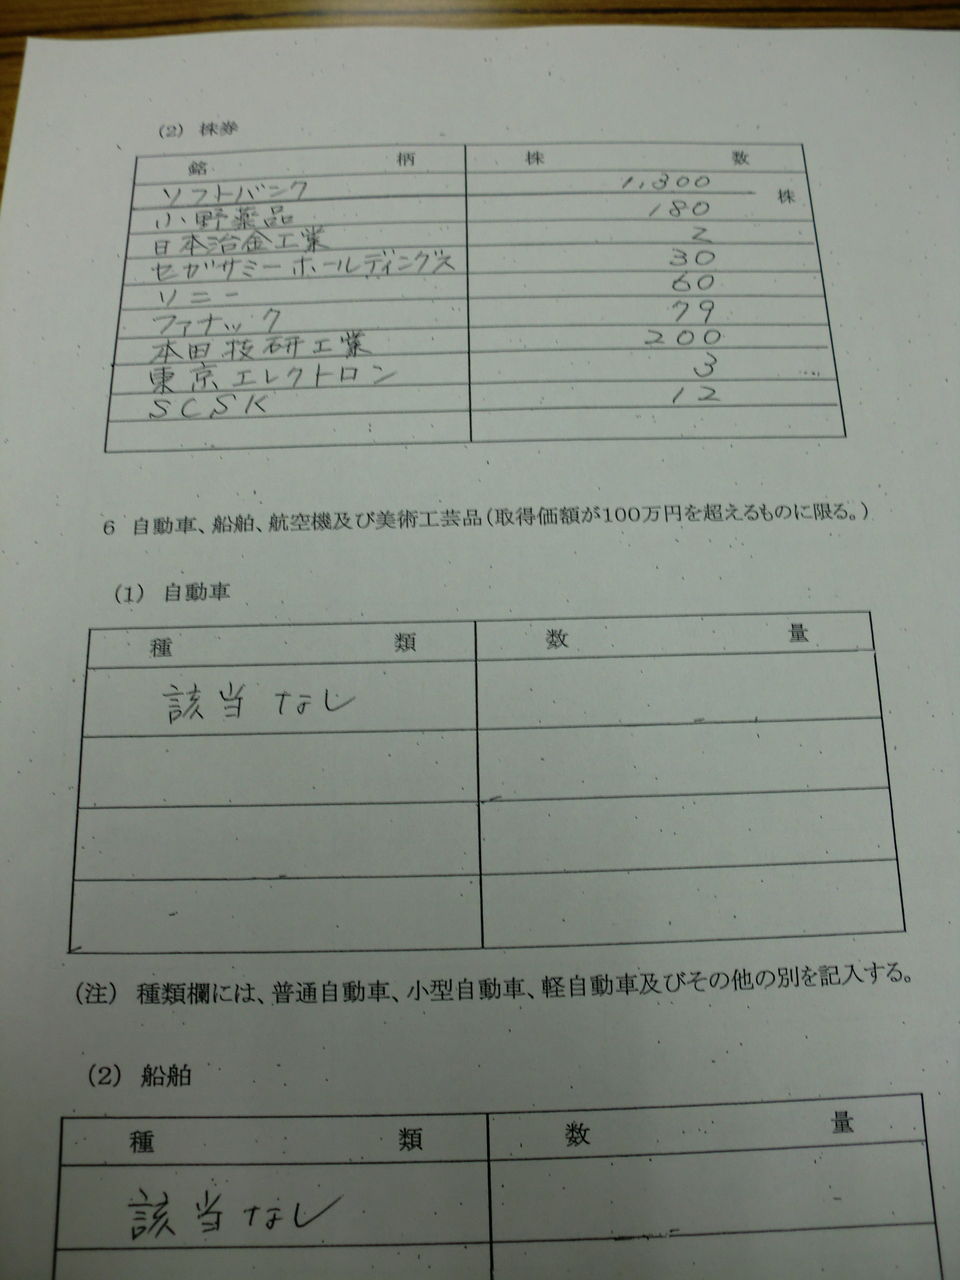 (2) 株券
銘 柄 株 数
ソフトバンク 1,300 株
小野薬品 180
日本冶金工業 2
セガサミーホールディングス 30
ソニー 60
ファナック 79
本田技研工業 200
東京エレクトロン 3
SCSK 12
6 自動車、船舶、航空機及び美術工芸品(取得価額が100万円を超えるものに限る。)
(1) 自動車
種 類 数 量
該当なし
(注) 種類欄には、普通自動車、小型自動車、軽自動車及びその他の別を記入する。
(2) 船舶
種 類 数 量
該当なし